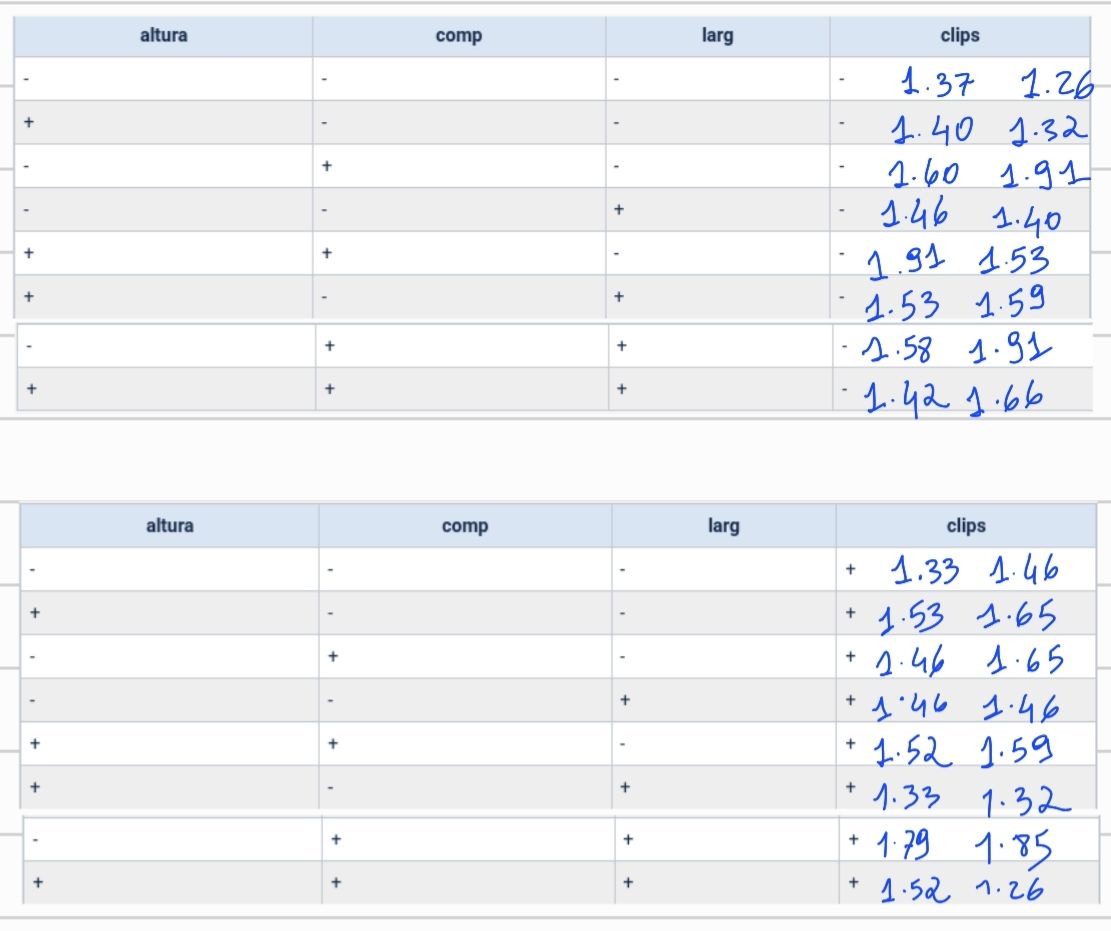 altura comp larg clips
- - - - 1.37 1.26
+ - - - 1.40 1.32
- + - - 1.60 1.91
- - + - 1.46 1.40
+ + - - 1.91 1.53
+ - + - 1.53 1.59
- + + - 1.58 1.91
+ + + - 1.42 1.66
altura comp larg clips
- - - + 1.33 1.46
+ - - + 1.53 1.65
- + - + 1.46 1.65
- - + + 1.46 1.46
+ + - + 1.52 1.59
+ - + + 1.33 1.32
- + + + 1.79 1.85
+ + + + 1.52 1.26